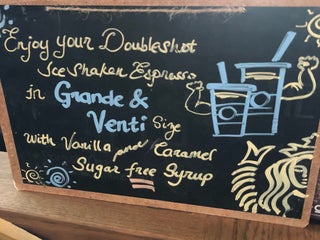 Enjoy your Doubleshot
Ice Shaken Espresso
in Grande &
Venti Size
With Vanilla and Caramel
Sugar free Syrup